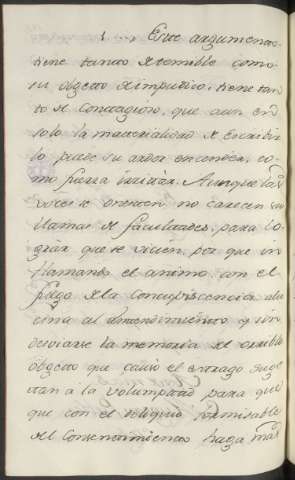 Este argumento
tiene tanto de temible como
su objeto de impudico, tiene tan
to de Contagioso, que aun en
solo la materialidad de escribir
lo puede su ardor encender, co-
mo fuerza irritar. Aunque las
voces se no carecen
llamar de facultades, para lo-
grar que se vicien, por que in
flamando el animo con el
fuego de la Concupiscencia alu
cina al entendimiento y
la memoria del
objeto que causó el estrago suge
tan a la voluntad para que
que con el formidable
del Consentimiento haga mas